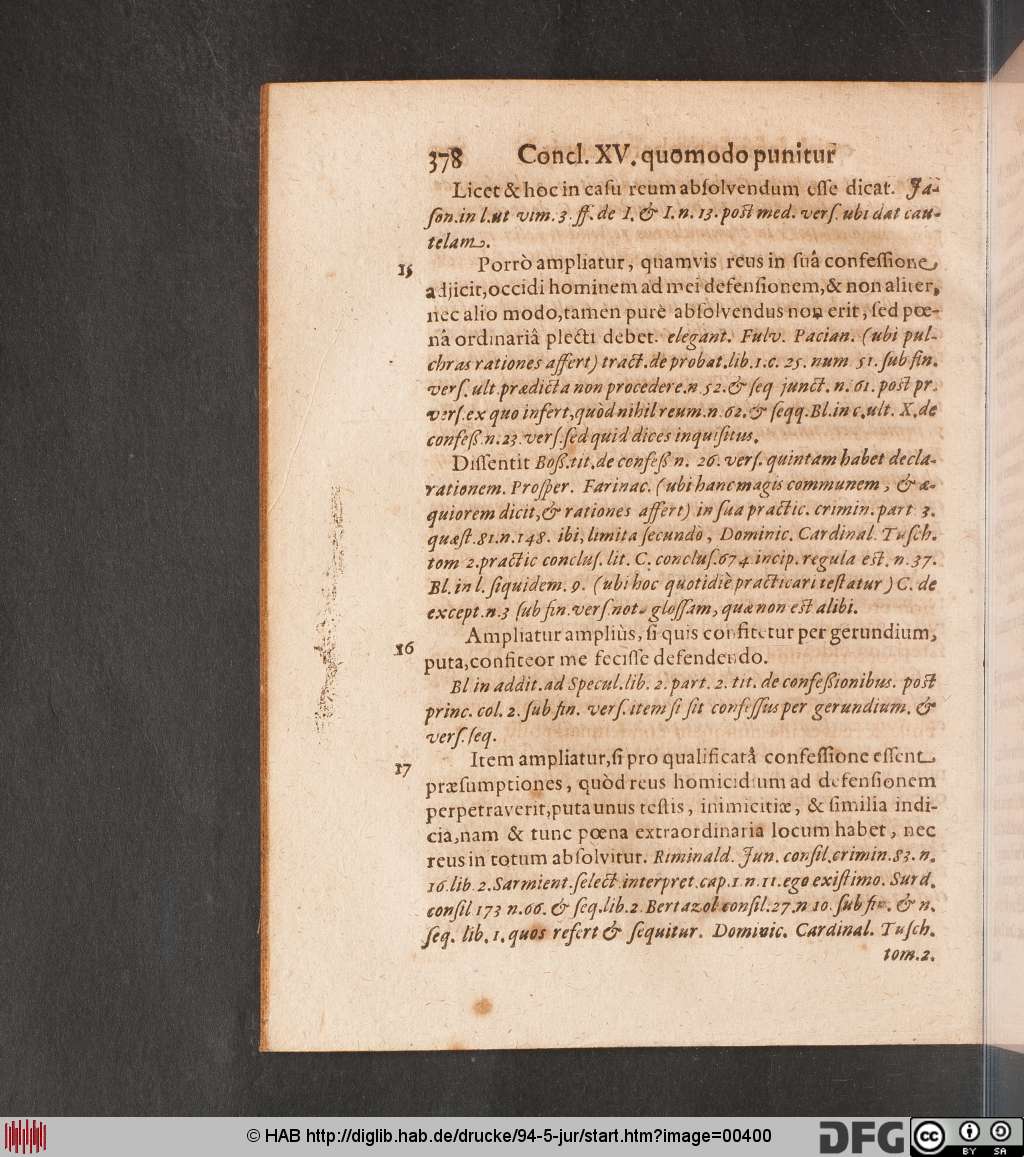 378 Concl. XV. quomodo punitur
Licet & hoc in casu reum absolvendum esse dicat. Ja-
son. in l. ut vim. 3. ff. de I. & I. n. 13. post med. vers. ubi dat cau-
telam.
15 Porrò ampliatur, quamvis reus in suâ confessione
adjicit, occidi hominem ad mei defensionem, & non aliter,
nec alio modo, tamen purè absolvendus non erit, sed pœ-
nâ ordinariâ plecti debet. elegant. Fulv. Pacian. (ubi pul-
chras rationes affert) tract. de probat. lib. 1. c. 25. num 51. sub fin.
vers. ult. prædicta non procedere. n. 52. & seq junct. n. 61. post pr.
vers. ex quo infert, quòd nihil reum. n. 62. & seqq. Bl. in c. ult. X. de
confeß. n. 23. vers. sed quid dices inquisitus.
Dissentit Boß. tit. de confeß n. 26. vers. quintam habet decla-
rationem. Prosper. Farinac. (ubi hanc magis communem, & æ-
quiorem dicit, & rationes affert) in sua practic. crimin. part 3.
quæst. 81. n. 148. ibi, limita secundò, Dominic. Cardinal. Tusch.
tom 2. practic conclus. lit. C. conclus. 674. incip. regula est. n. 37.
Bl. in l. siquidem. 9. (ubi hoc quotidiè practicari testatur) C. de
except. n. 3 sub fin. vers. not. glossam, quæ non est alibi.
16 Ampliatur ampliùs, si quis confitetur per gerundium,
puta, confiteor me fecisse defendendo.
Bl in addit. ad Specul. lib. 2. part. 2. tit. de confeßionibus. post
princ. col. 2. sub fin. vers. item si sit confessus per gerundium. &
vers. seq.
17 Item ampliatur, si pro qualificatâ confessione essent
præsumptiones, quòd reus homicidium ad defensionem
perpetraverit, puta unus testis, inimicitiæ, & similia indi-
cia, nam & tunc pœna extraordinaria locum habet, nec
reus in totum absolvitur. Riminald. Jun. consil. crimin. 83. n.
16. lib. 2. Sarmient. select. interpret. cap. 1 n. 11. ego existimo. Surd.
consil 173 n. 66. & seq. lib. 2. Bertazol consil. 27. n 10. sub fin. & n.
seq. lib. 1. quos refert & sequitur. Dominic. Cardinal. Tusch.
tom. 2.
© HAB http://diglib.hab.de/drucke/94-5-jur/start.htm?image=00400
DFG
cc BY SA